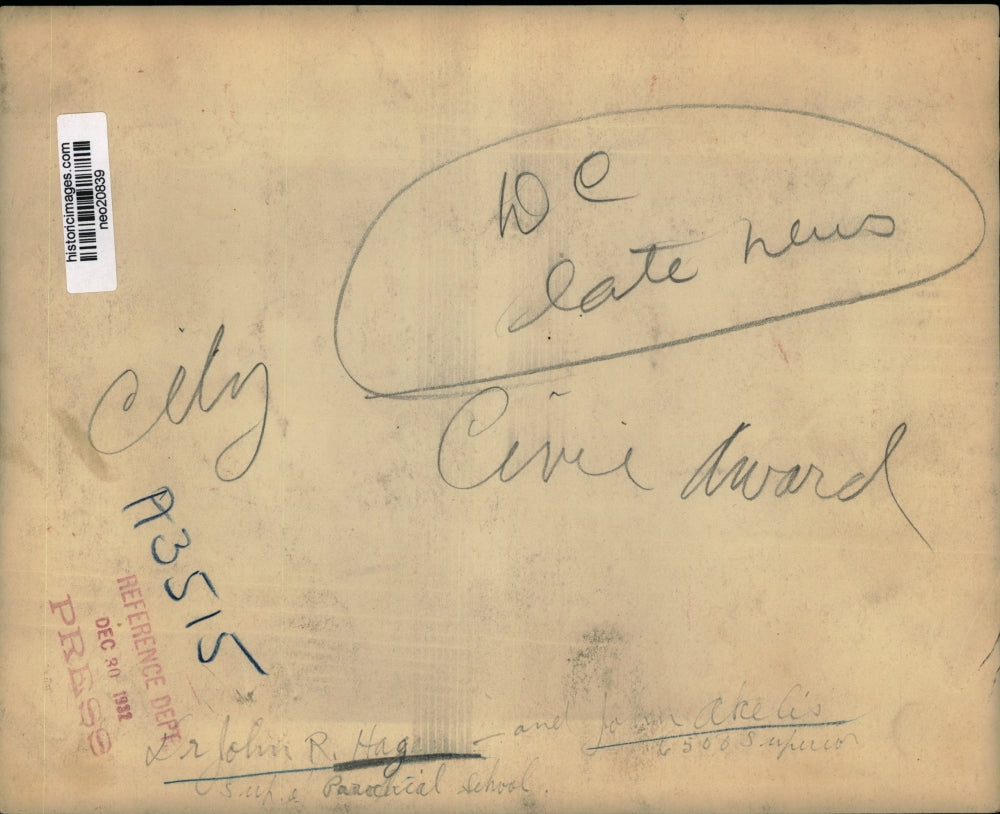 historicimages.com
neo20839
DC
late news
City
Civic Award
A3515
REFERENCE DEPT
DEC 30 1932
PRESS
Dr John R. Hagan - and John
6500 Superior
Sup. Parochial School.